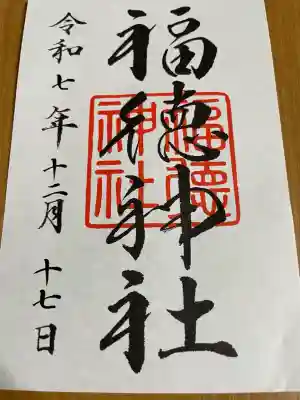 福徳神社
福徳神社
令和七年十二月十七日